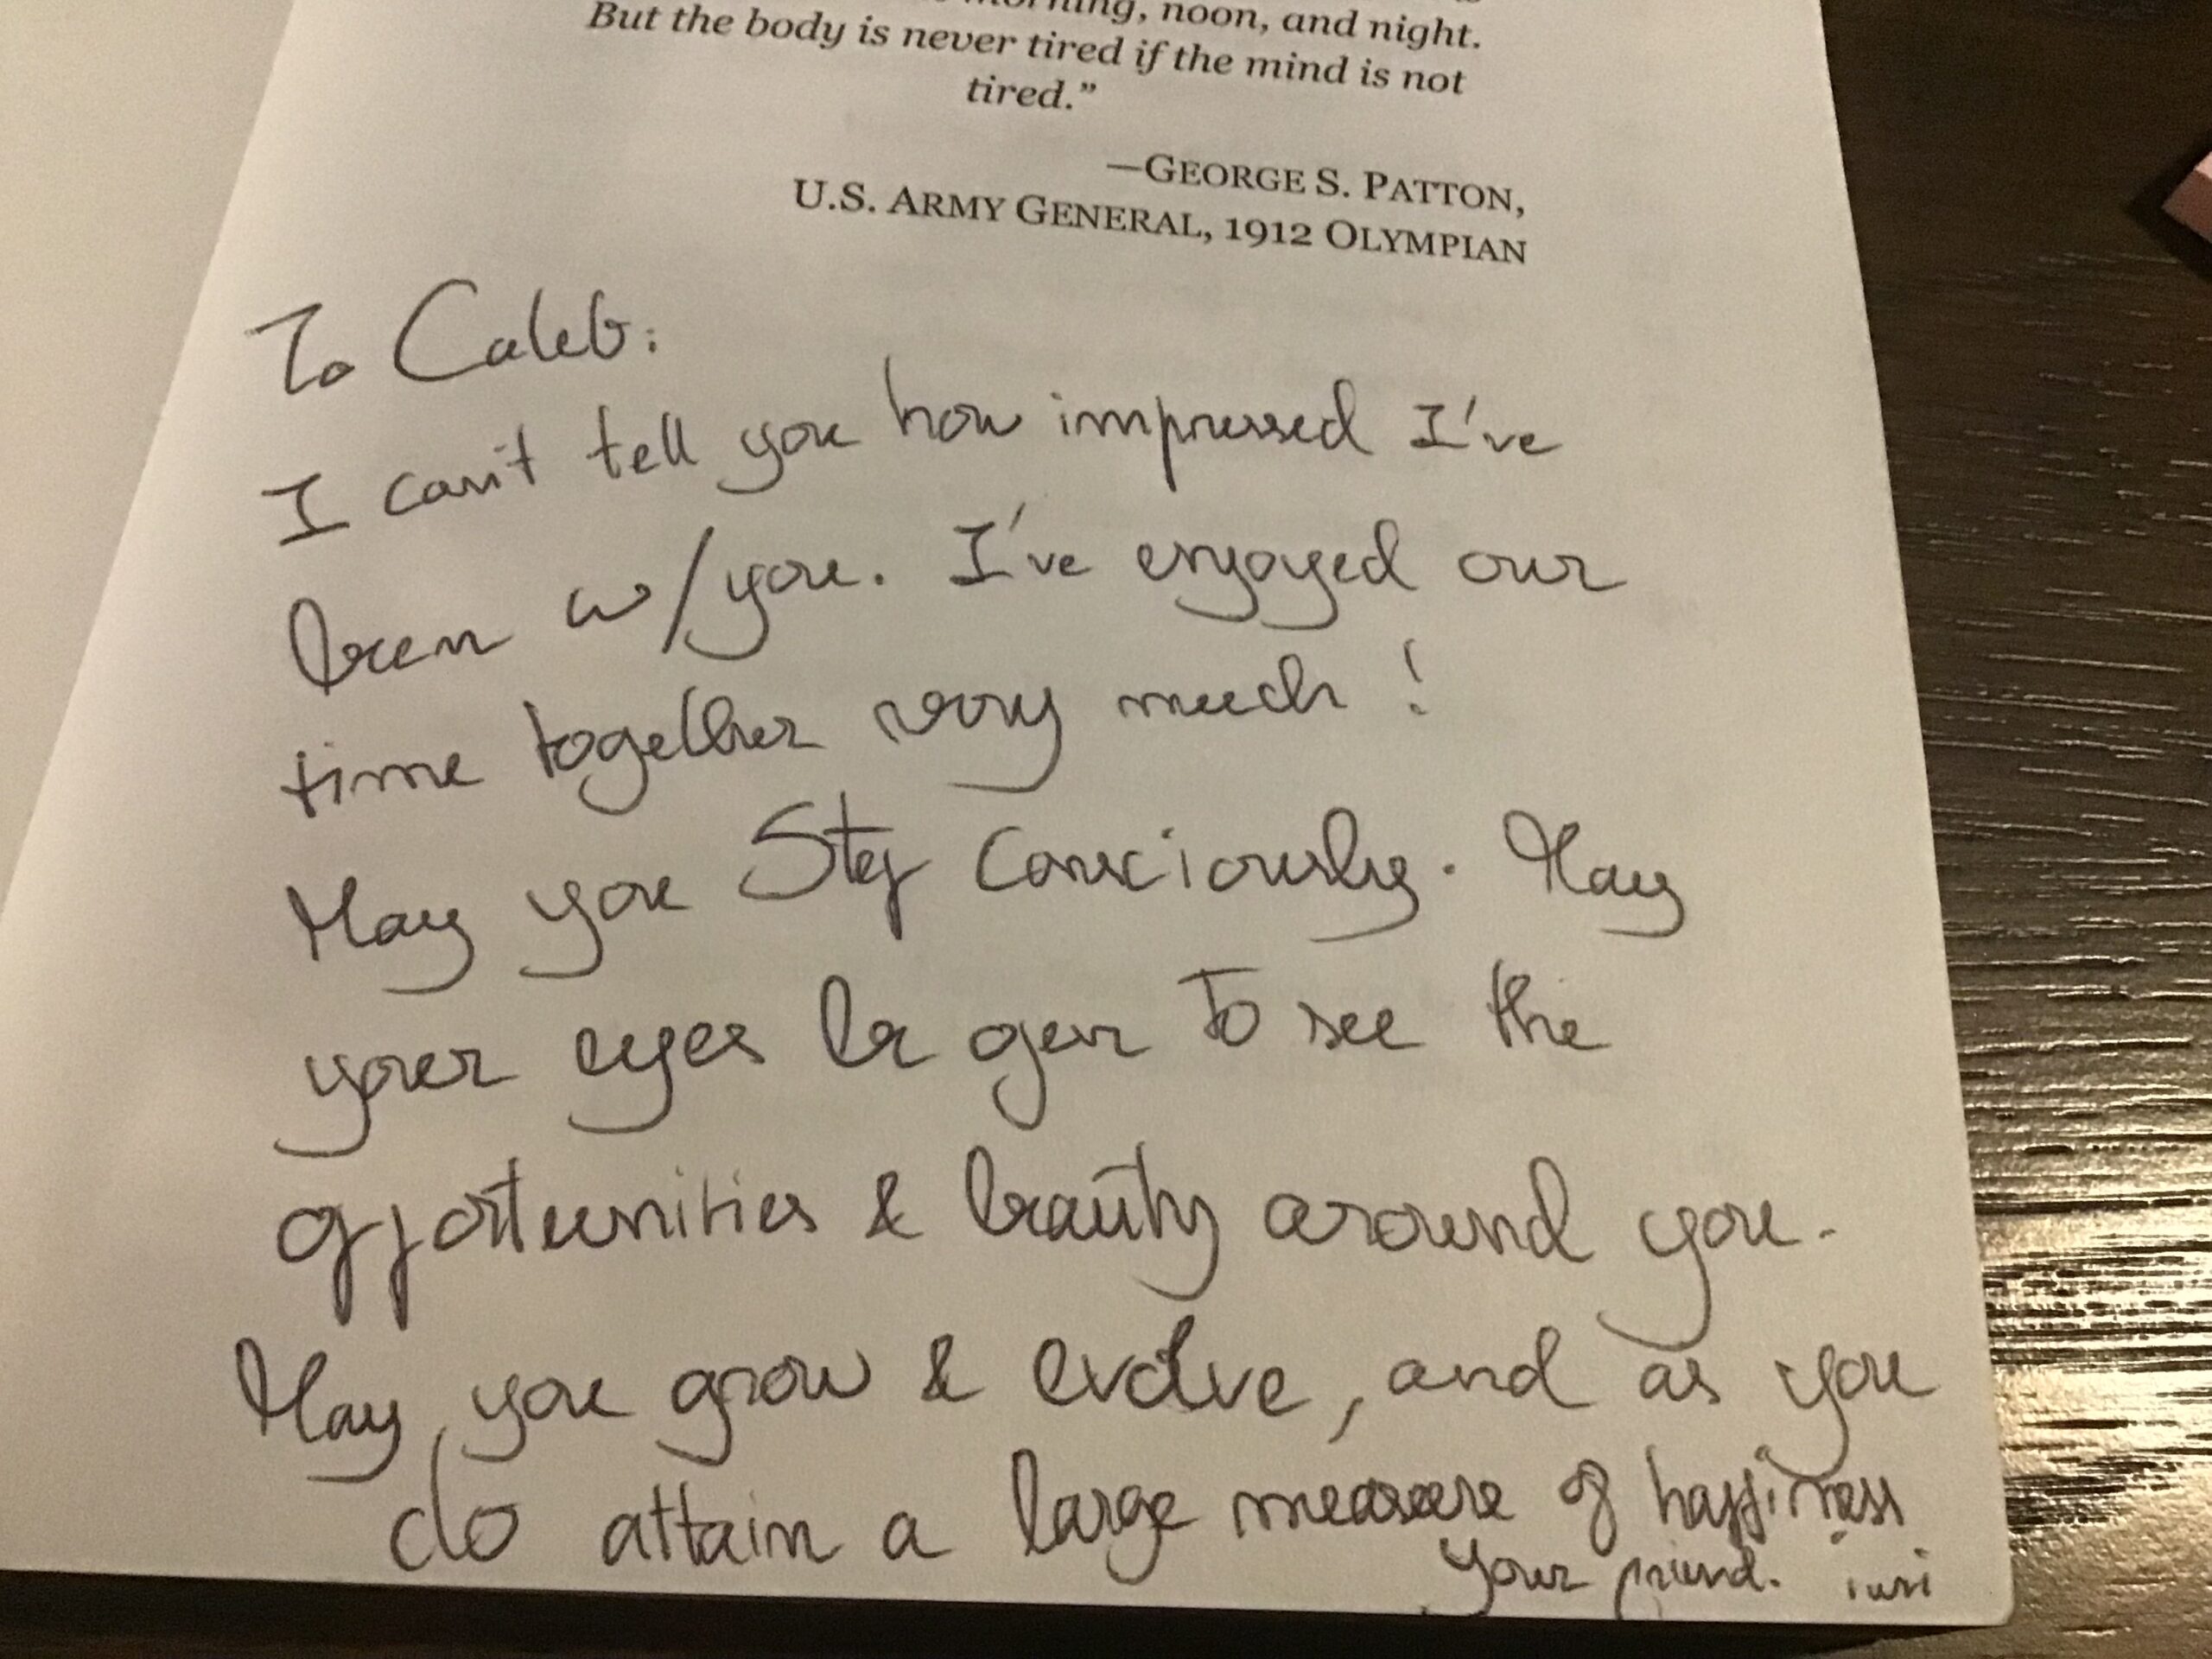 morning, noon, and night.
But the body is never tired if the mind is not
tired.”
—GEORGE S. PATTON,
U.S. ARMY GENERAL, 1912 OLYMPIAN
To Caleb:
I can't tell you how impressed I've
been w/you. I've enjoyed our
time together very much!
May you Step Consciously. May
your eyes be open to see the
opportunities & beauty around you.
May you grow & evolve, and as you
do attain a large measure of happiness
Your friend. iuri